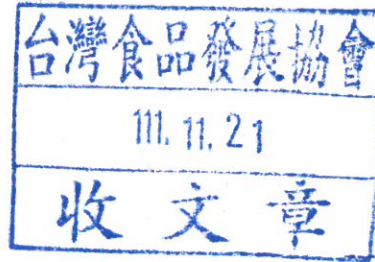 台灣食品發展協會
111.11.21
收文章